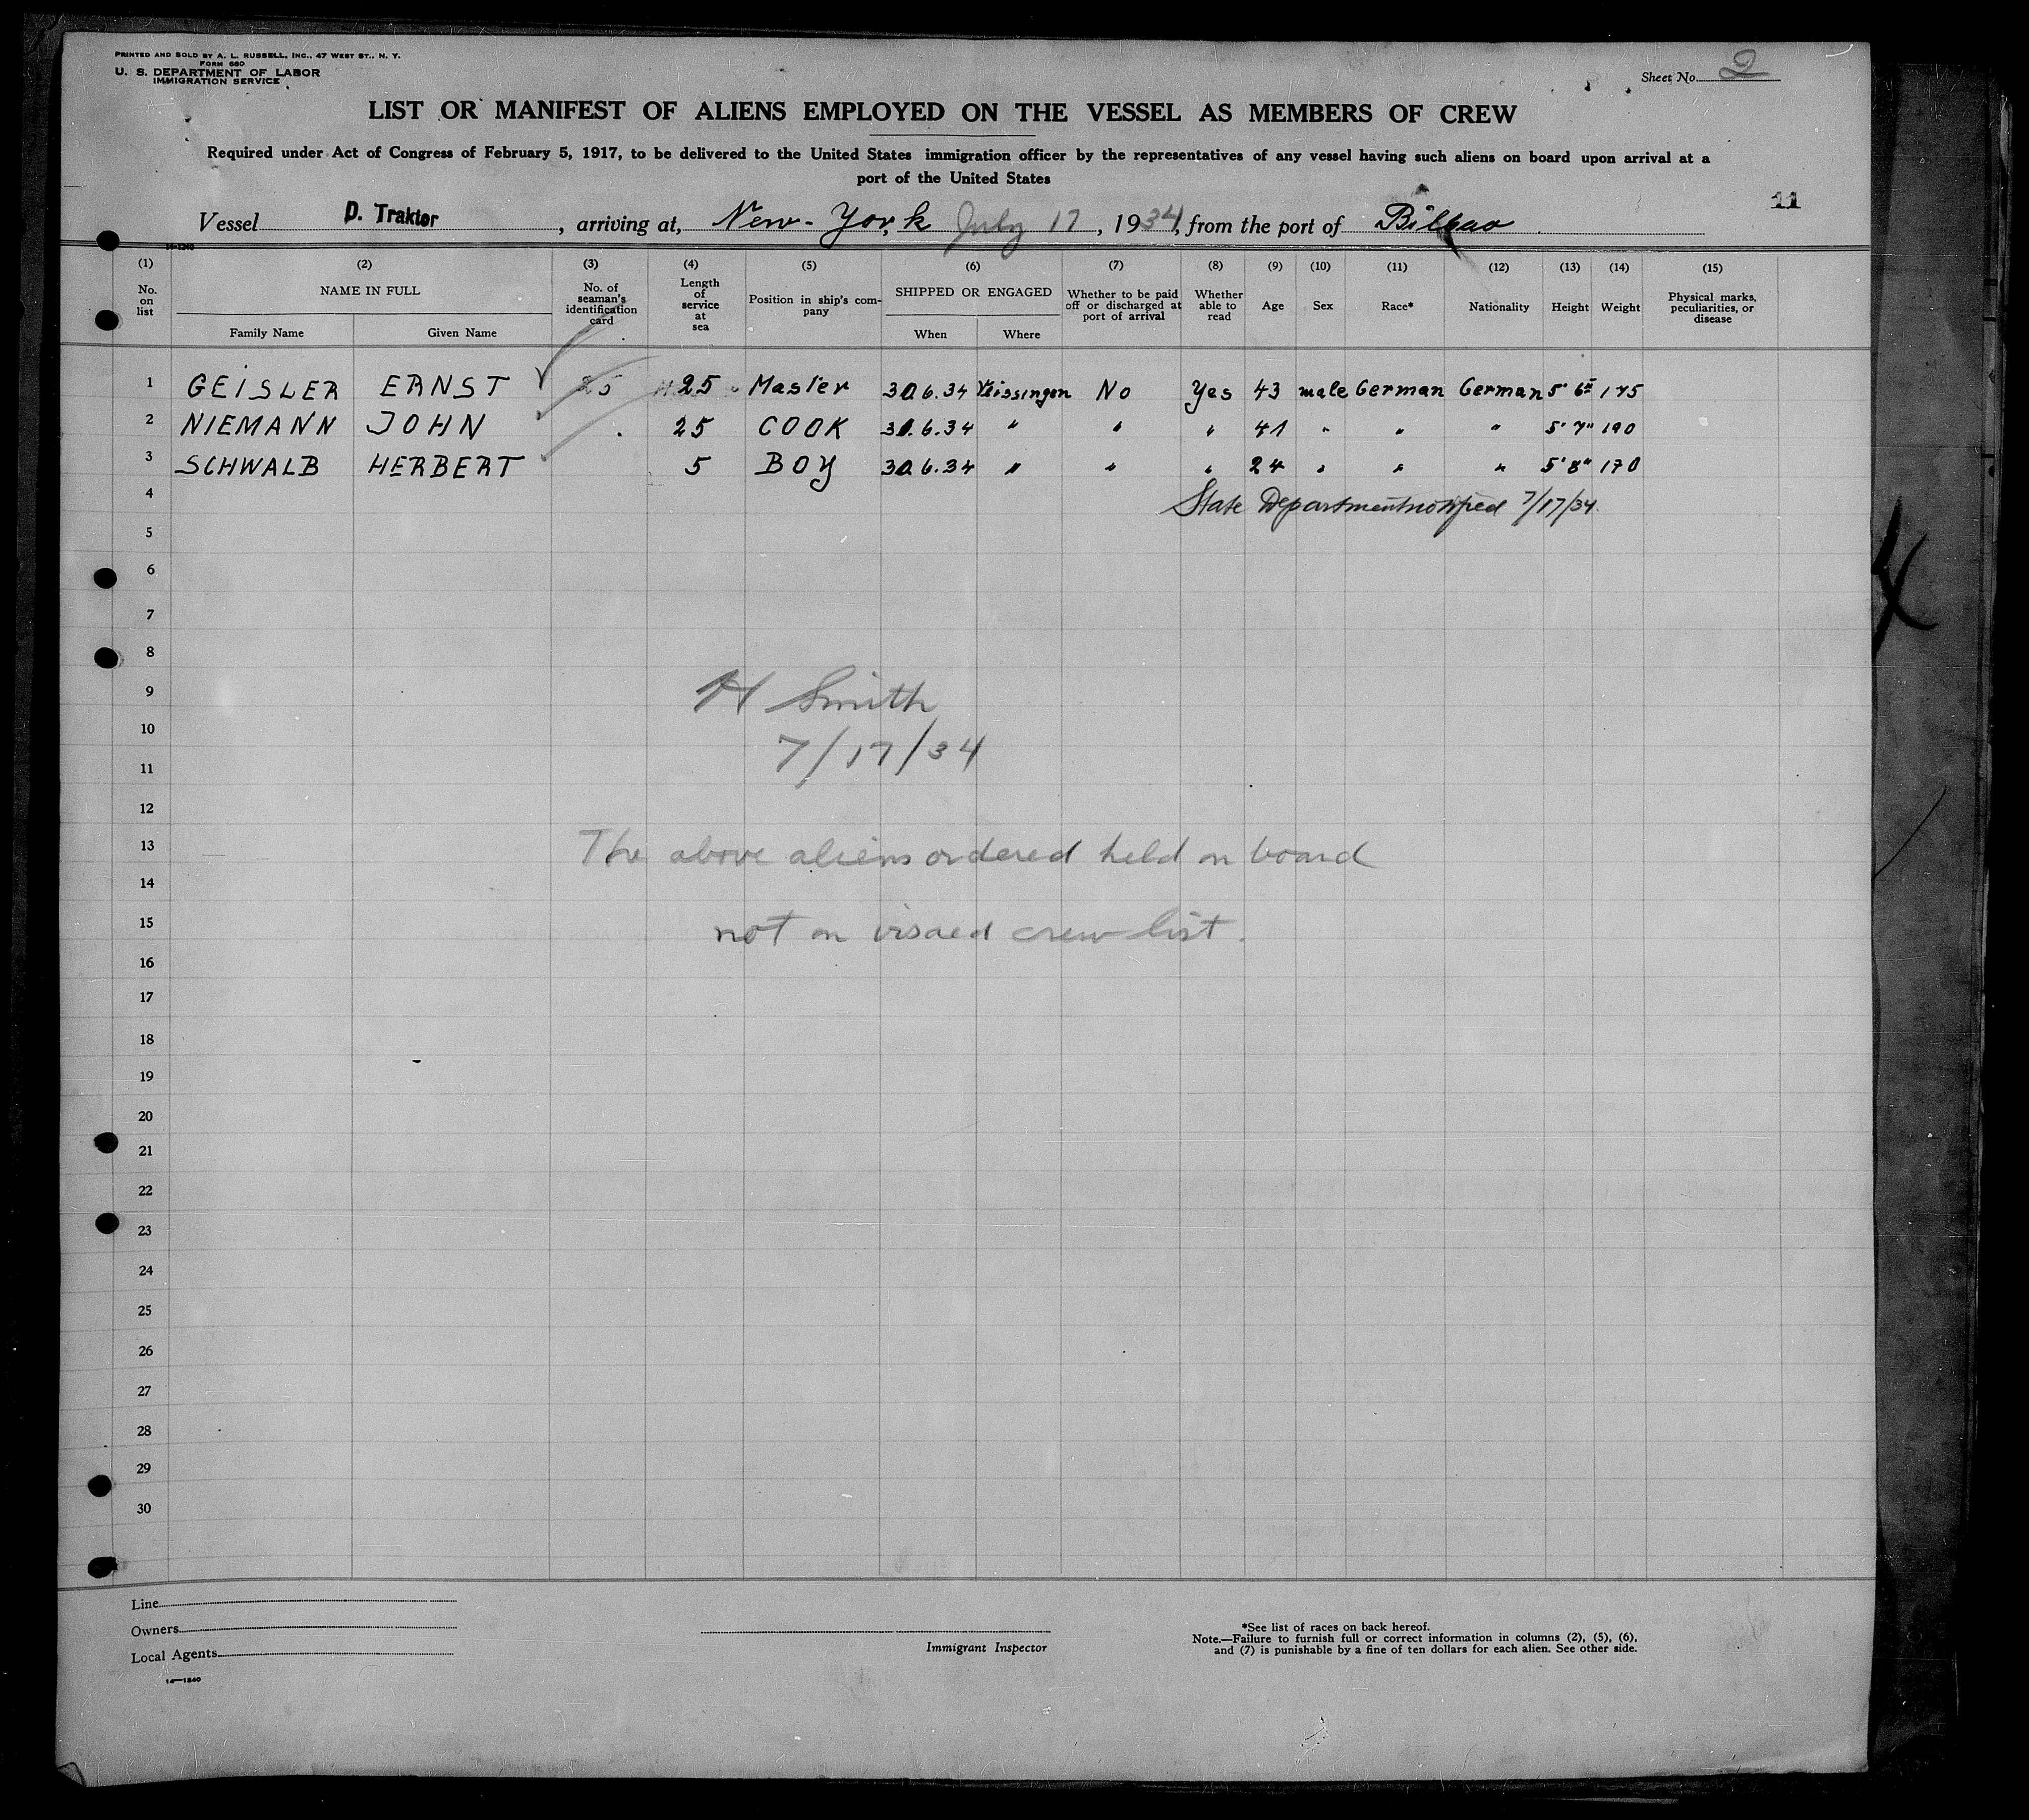 PRINTED AND SOLD BY A. L. RUSSELL, INC., 47 WEST ST., N. Y.
FORM 680
U. S. DEPARTMENT OF LABOR
IMMIGRATION SERVICE
Sheet No. 2
LIST OR MANIFEST OF ALIENS EMPLOYED ON THE VESSEL AS MEMBERS OF CREW
Required under Act of Congress of February 5, 1917, to be delivered to the United States immigration officer by the representatives of any vessel having such aliens on board upon arrival at a
port of the United States
11
Vessel D. Trakter, arriving at, New-York July 17, 1934, from the port of Bilbao
14-1240
(1) (2) (3) (4) (5) (6) (7) (8) (9) (10) (11) (12) (13) (14) (15)
No. on list
NAME IN FULL
Family Name Given Name
No. of seaman's identification card
Length of service at sea
Position in ship's company
SHIPPED OR ENGAGED
When Where
Whether to be paid off or discharged at port of arrival
Whether able to read
Age Sex Race* Nationality Height Weight
Physical marks, peculiarities, or disease
1 GEISLER ERNST 25 25 Master 30.6.34 Vlissingen No Yes 43 male German German 5' 6" 175
2 NIEMANN JOHN 25 COOK 30.6.34 " " " 41 " " " 5' 7" 190
3 SCHWALB HERBERT 5 BOY 30.6.34 " " " 24 " " " 5' 8" 170
4 State Department notified 7/17/34.
5
6
7
8
9 H Smith
10 7/17/34
11
12
13 The above aliens ordered held on board
14
15 not on visaed crew list.
16
17
18
19
20
21
22
23
24
25
26
27
28
29
30
Line
Owners
Local Agents
14—1240
Immigrant Inspector
*See list of races on back hereof.
Note.—Failure to furnish full or correct information in columns (2), (5), (6),
and (7) is punishable by a fine of ten dollars for each alien. See other side.